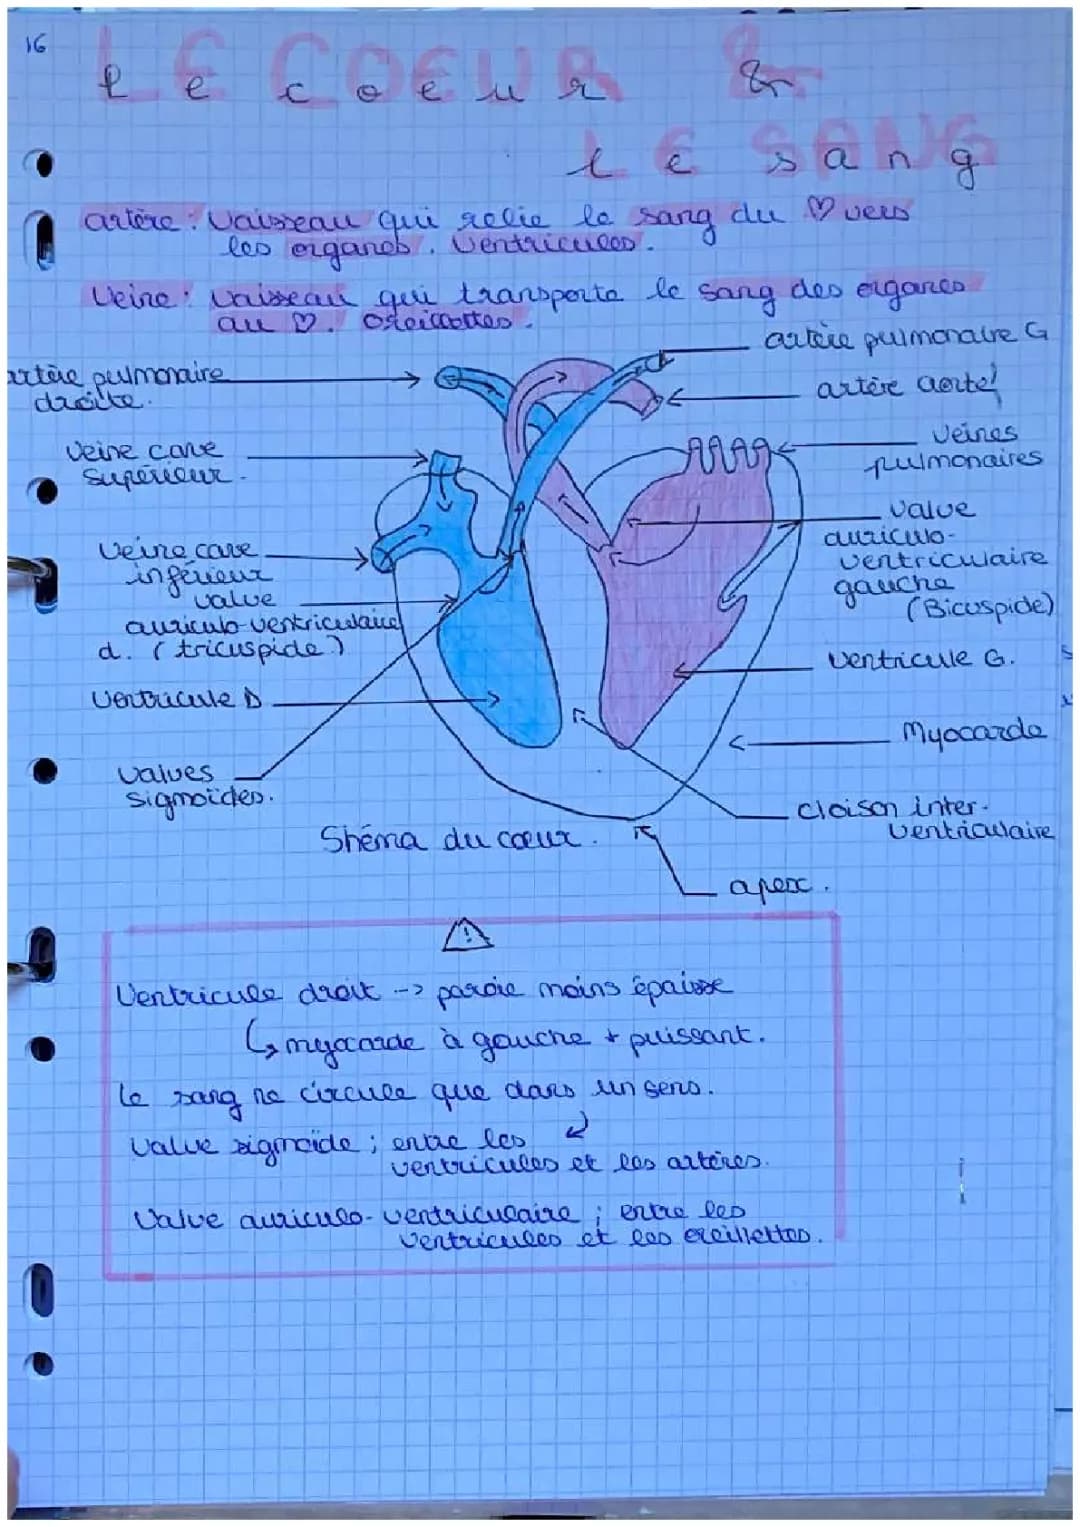 16
LE COEUR &
le coeur &
LE SANG
le sang
artère : Vaisseau qui relie le sang du ♡ vers
les organes. Ventricules.
Veine : vaisseau qui transporte le sang des organes
au ♡. Oreillettes.
artère pulmonaire G
artère pulmonaire
droite.
artère aorte
Veine cave
supérieur.
Veines
pulmonaires
Veine cave
inférieur
valve
auriculo-
ventriculaire
gauche
(Bicuspide)
valve
auriculo-ventriculaire
d. (tricuspide)
Ventricule G.
Ventricule D
Myocarde
valves
sigmoïdes.
cloison inter-
ventriculaire
Shéma du cœur.
apex.
!
Ventricule droit --> paroie moins épaisse
↳ myocarde à gauche + puissant.
le sang ne circule que dans un sens.
Valve sigmoïde ; entre les
ventricules et les artères.
Valve auriculo-ventriculaire ; entre les
ventricules et les oreillettes.